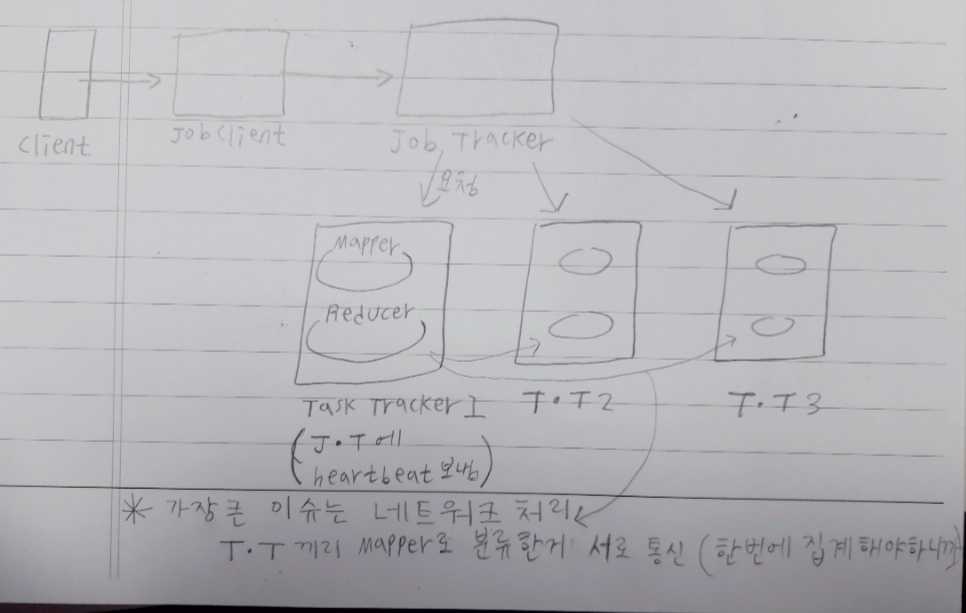 Client
JobClient
Job Tracker
요청
Mapper
Reducer
Task Tracker 1
T.T 2
T.T 3
(J.T에
heartbeat 보냄)
* 가장 큰 이슈는 네트워크 처리
T.T 끼리 Mapper로 분류한거 서로 통신 (한번에 집계해야하니까)